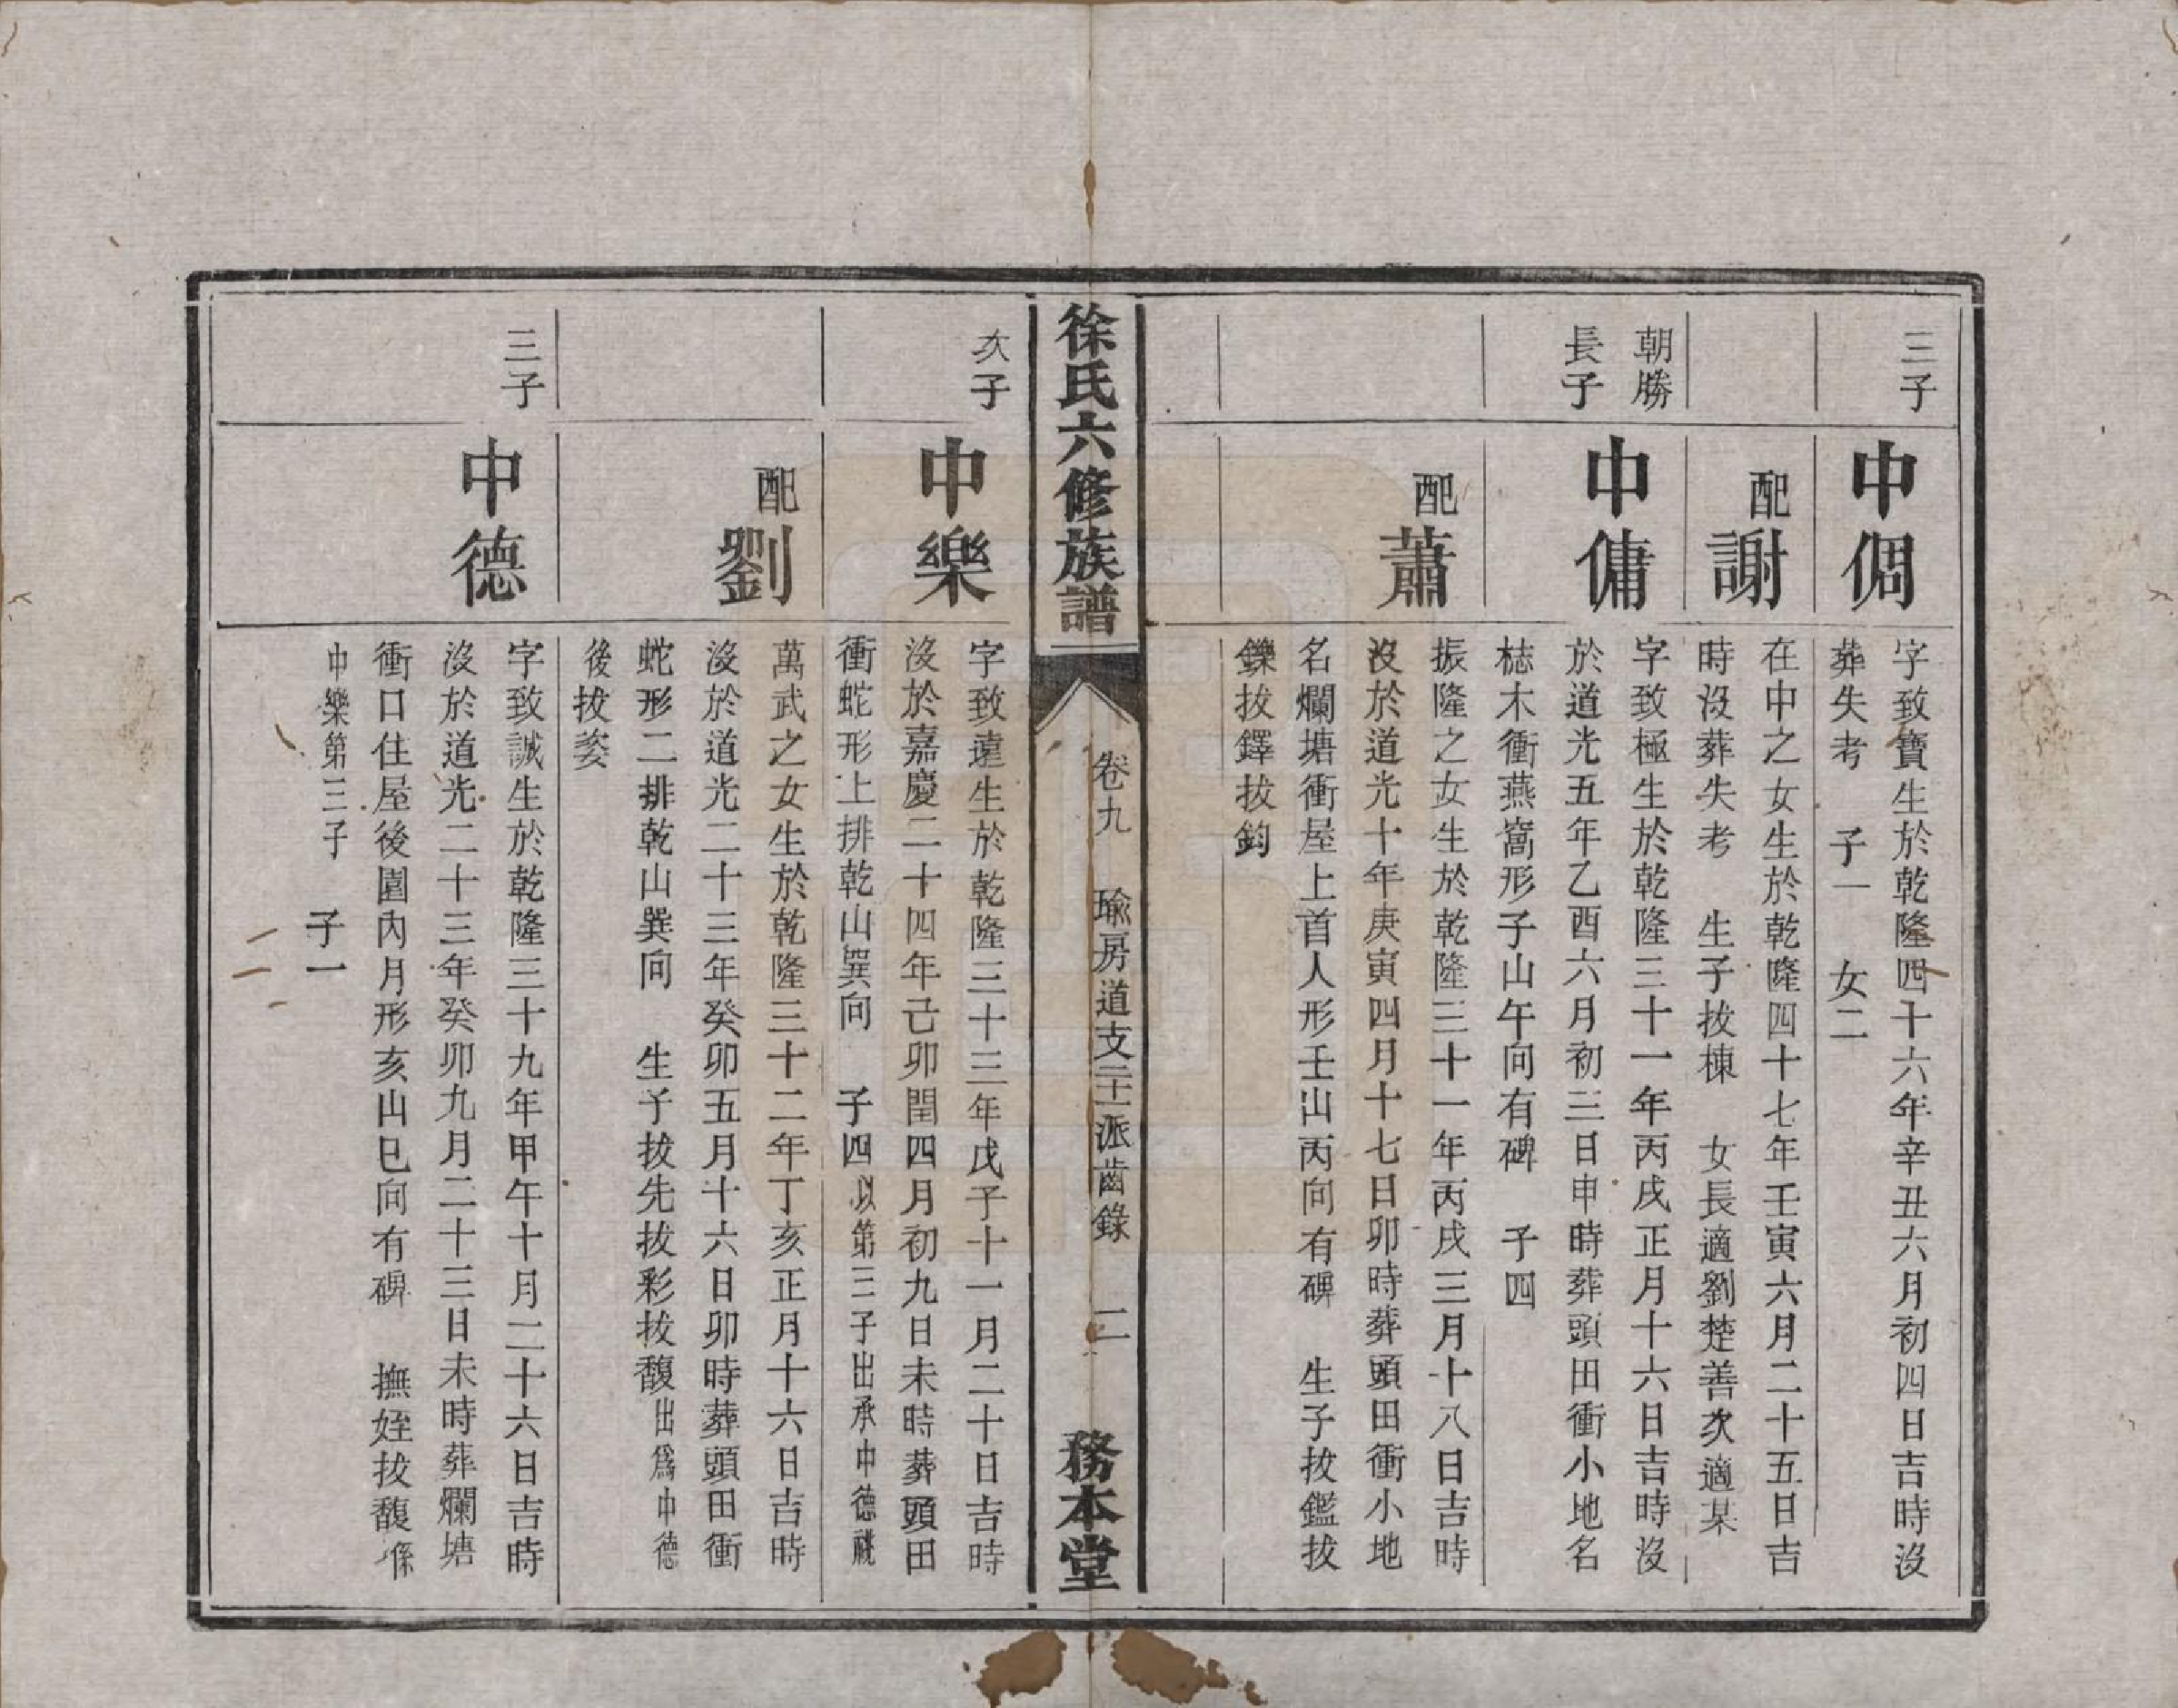 三子
中倜
字致寶生於乾隆四十六年辛丑六月初四日吉時沒
葬失考　子一　女二
配謝
在中之女生於乾隆四十七年壬寅六月二十五日吉
時沒葬失考　生子拔棟　女長適劉楚善次適某
朝勝
長子
中傭
字致極生於乾隆三十一年丙戌正月十六日吉時沒
於道光五年乙酉六月初三日申時葬頭田衝小地名
梽木衝燕窩形子山午向有碑　子四
配蕭
振隆之女生於乾隆三十一年丙戌三月十八日吉時
沒於道光十年庚寅四月十七日卯時葬頭田衝小地
名爛塘衝屋上首人形壬山丙向有碑　生子拔鑑拔
鑠拔鐸拔鈞
徐氏六修族譜
卷九　瑜房道支三十二派齒錄　二
務本堂
次子
中樂
字致遠生於乾隆三十三年戊子十一月二十日吉時
沒於嘉慶二十四年己卯閏四月初九日未時葬頭田
衝蛇形上排乾山巽向　子四以第三子出承中德祧
配劉
萬武之女生於乾隆三十二年丁亥正月十六日吉時
沒於道光二十三年癸卯五月十六日卯時葬頭田衝
蛇形二排乾山巽向　生子拔先拔彩拔馥出爲中德
後拔姿
三子
中德
字致誠生於乾隆三十九年甲午十月二十六日吉時
沒於道光二十三年癸卯九月二十三日未時葬爛塘
衝口住屋後園內月形亥山巳向有碑　撫姪拔馥係
中樂第三子　子一